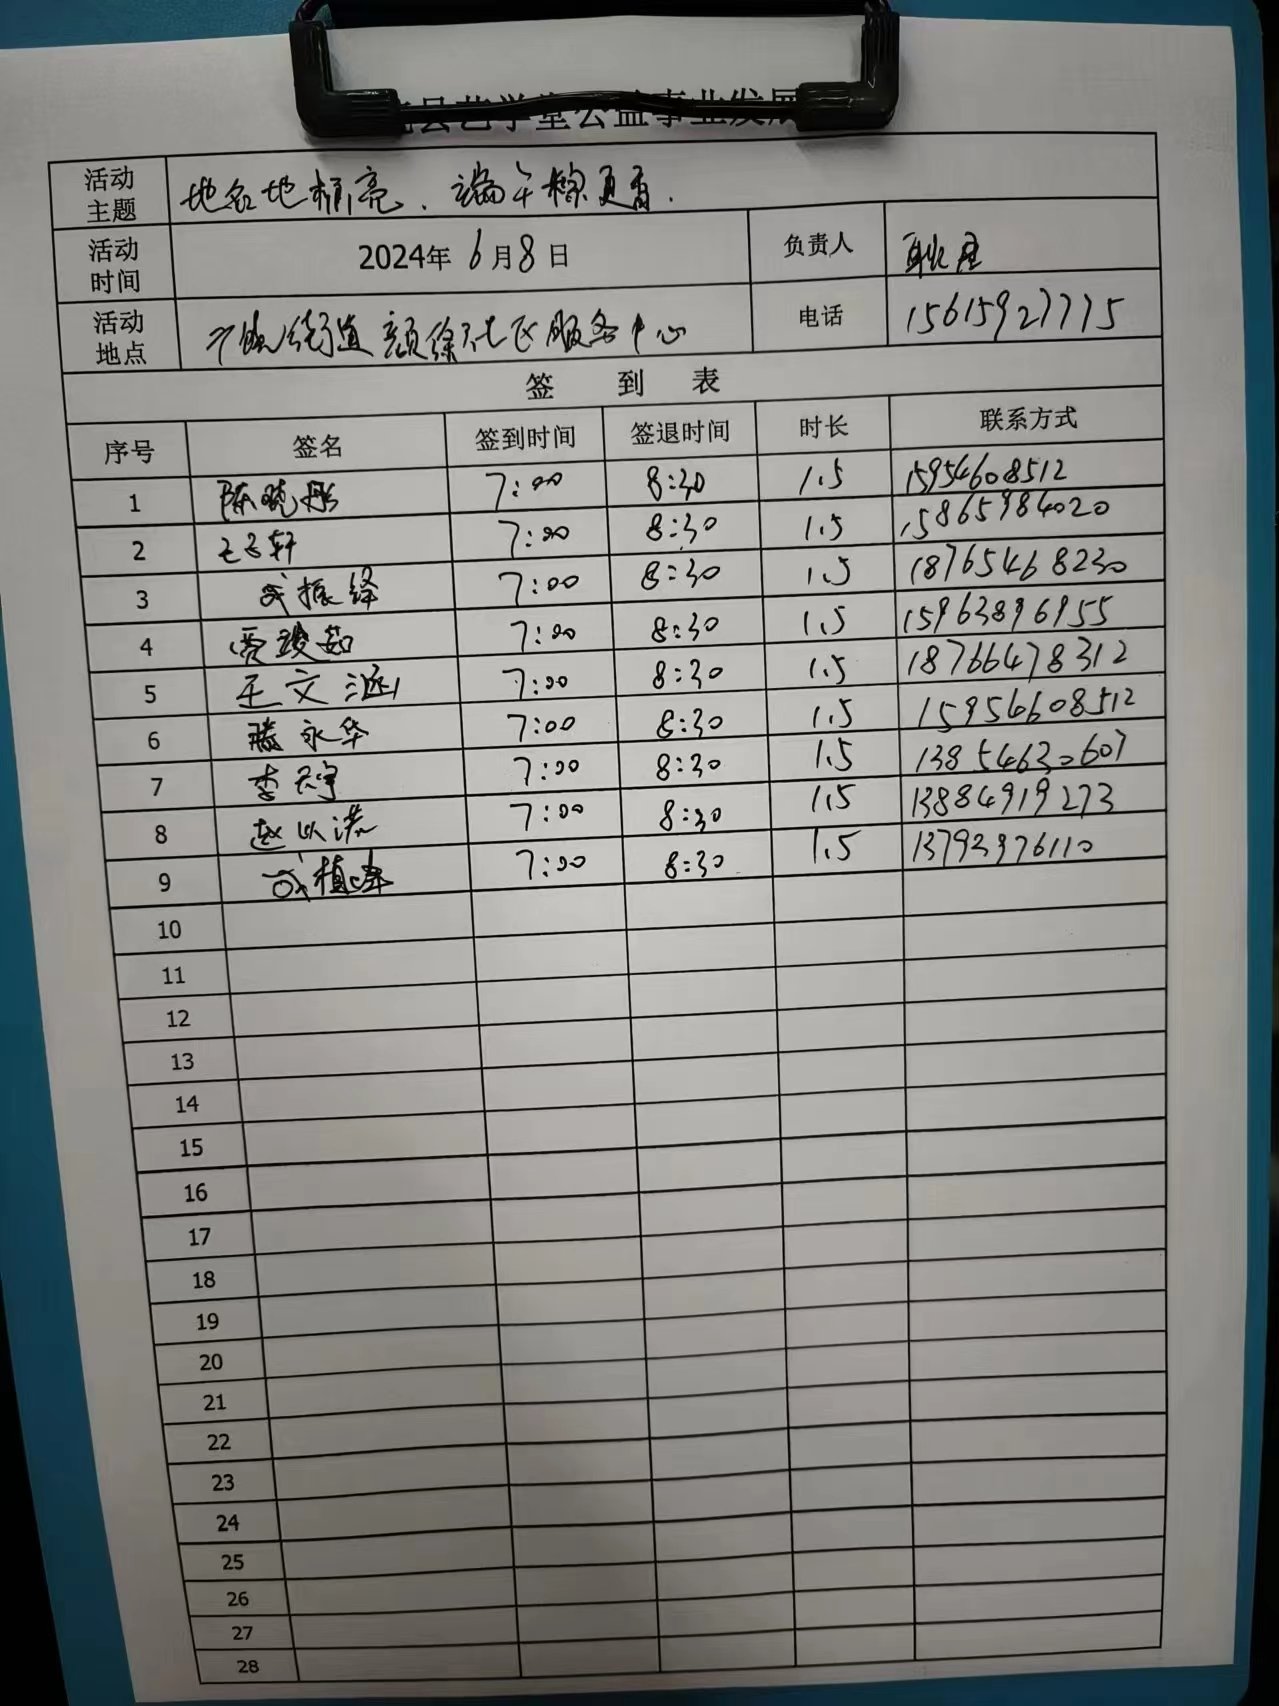 县艺学堂公益事业发展
活动主题 地名地标亮、端午粽更香.
活动时间 2024年6月8日 负责人
活动地点 街道颜徐社区服务中心 电话 15615927775
签 到 表
序号 签名 签到时间 签退时间 时长 联系方式
1 陈晓彤 7:00 8:30 1.5 15954608512
2 王子轩 7:00 8:30 1.5 15865984020
3 成振绎 7:00 8:30 1.5 18765468230
4 贾竣茹 7:00 8:30 1.5 15963896955
5 王文涵 7:00 8:30 1.5 18766478312
6 滕永华 7:00 8:30 1.5 15954608512
7 李天宇 7:00 8:30 1.5 13854630607
8 赵以诺 7:00 8:30 1.5 13884919273
9 成植峰 7:00 8:30 1.5 13793976110
10
11
12
13
14
15
16
17
18
19
20
21
22
23
24
25
26
27
28